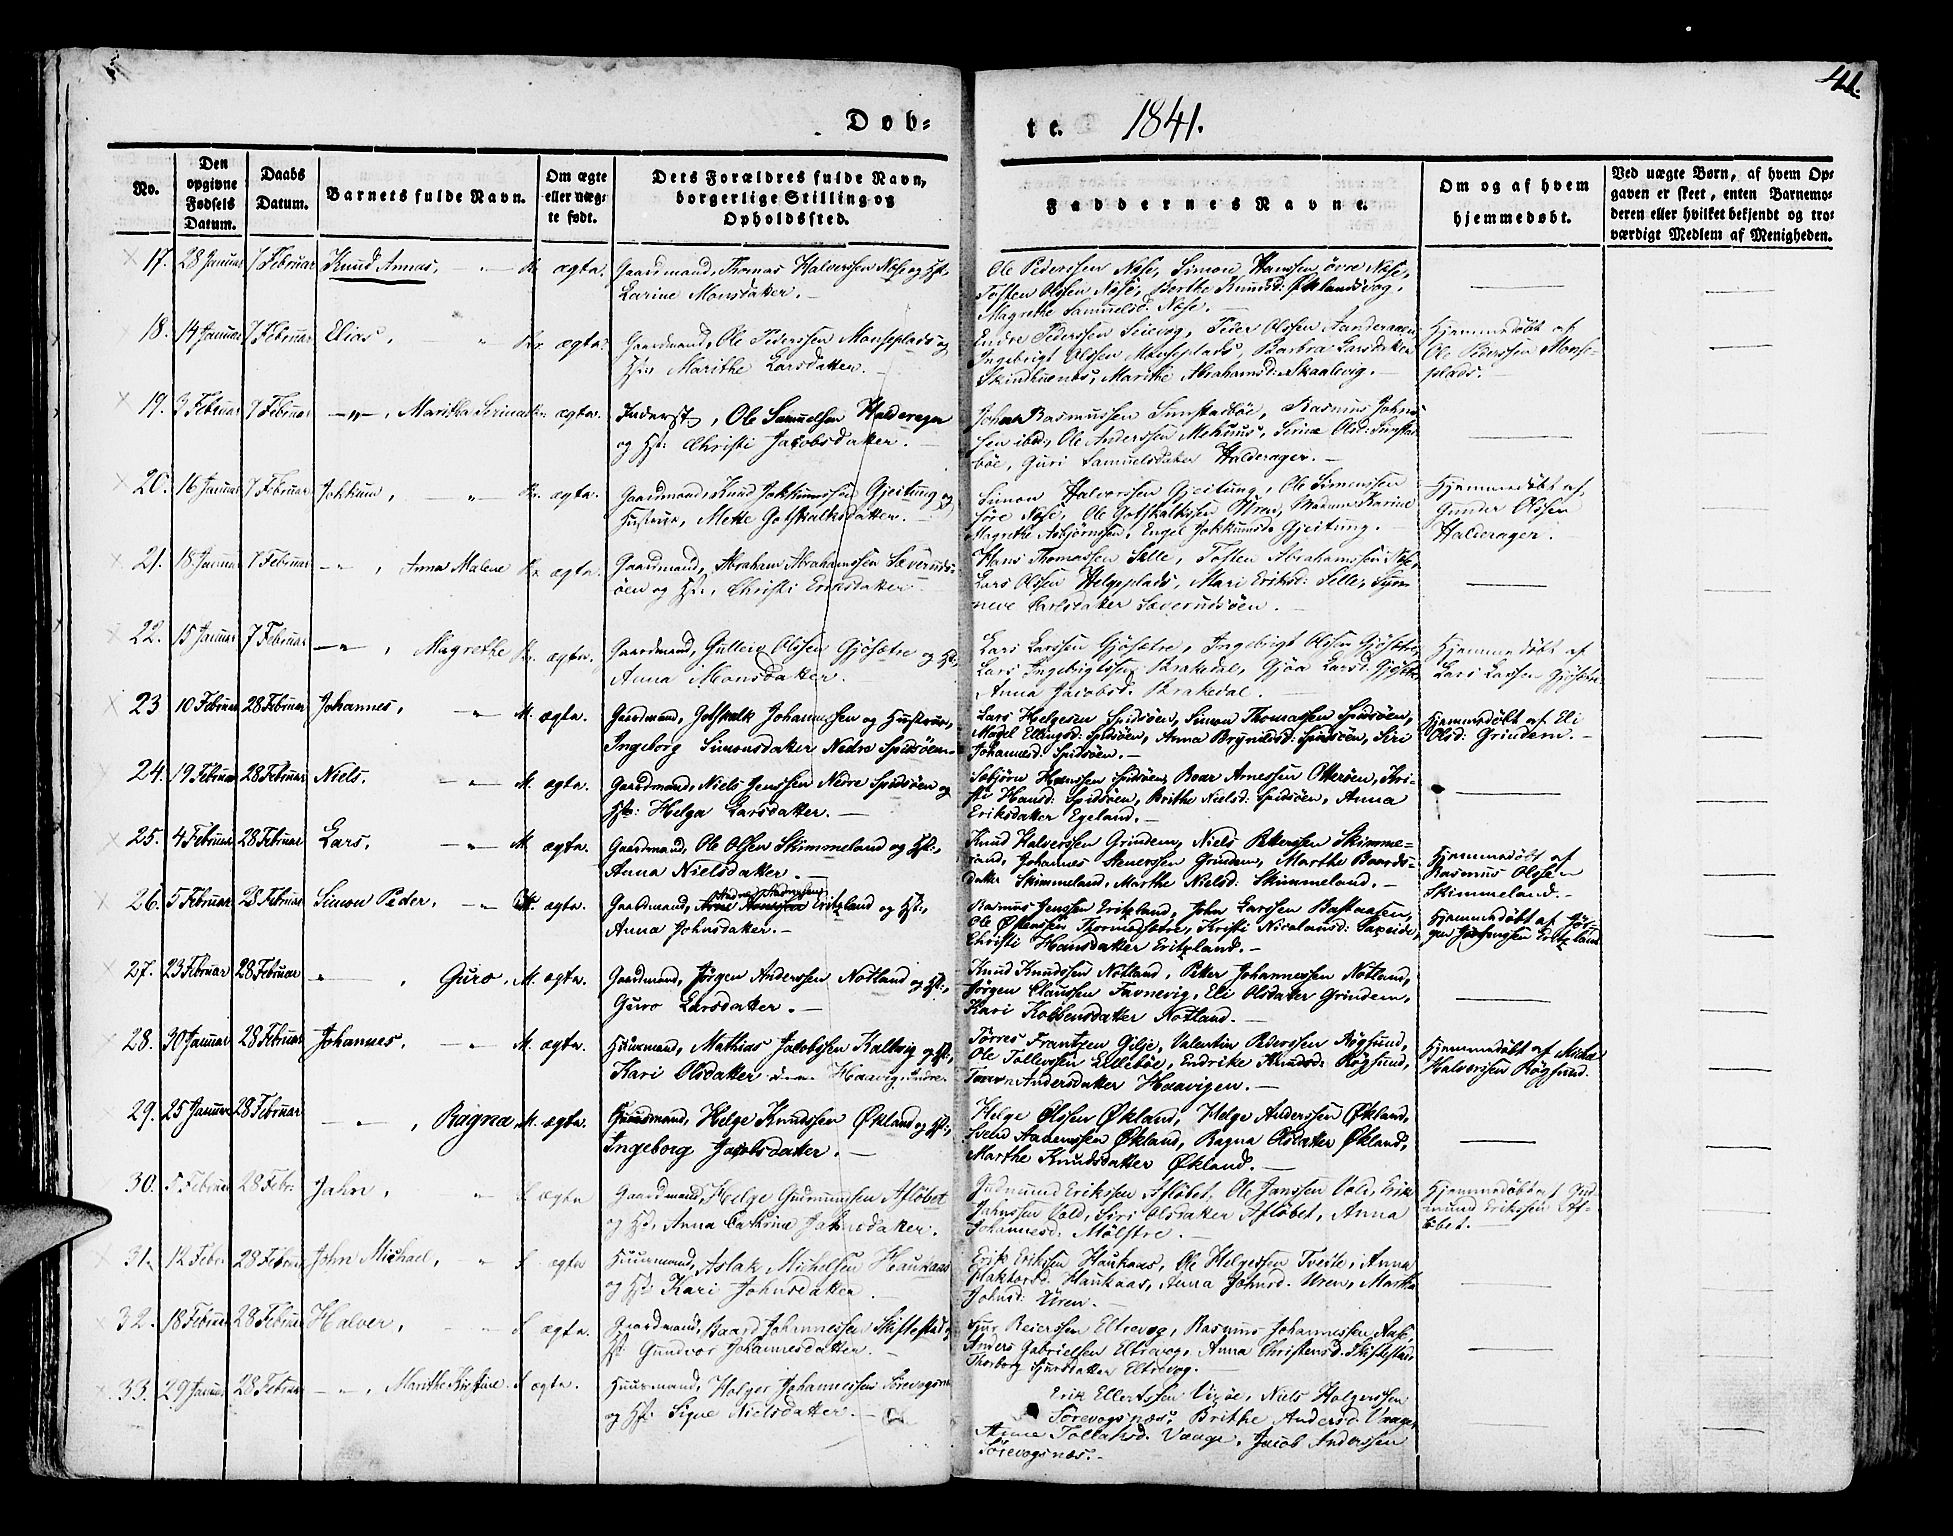 41.
Døb-
te. 1841.
No.
Den opgivne Fødsels Datum.
Daabs Datum.
Barnets fulde Navn.
Om ægte eller uægte født.
Dets Forældres fulde Navn, borgerlige Stilling og Opholdssted.
Faddernes Navne.
Om og af hvem hjemmedøbt.
Ved uægte Børn, af hvem Opgaven er skeet, enten Barnemoderen eller hvilket bekjendt og troværdigt Medlem af Menigheden.
17. 28 Januar 7 Februar Knud Annas, — " ægte. Gaardmand, Thomas Halversen Næse og Hst:
Larine Monsdatter. —
Ole Pederssen Næse, Simon Hanssen øvre Næse,
Tosten Olssen Næse, Berthe Knudsd: Øklandsvog,
Magrethe Samuelsd: Næse. —
18. 14 Januar 7 Februar Elias, — " ægte. Gaardmand, Ole Pederssen Monseplads og
Hst: Marithe Larsdatter. —
Endre Pederssen Seievog, Peder Olssen
Ingebrigt Olssen Monseplads, Barbra Larsdatter
Marithe Abrahamsd: Skaalevig. —
Hjemmedøbt af
Ole Pederssen Monse-
plads. —
19. 3 Februar 7 Februar — " —, Maritha Serina ægte. Inderst, Ole Samuelsen Halderager
og Hst: Christi Jacobsdatter. —
Johan Rasmussen Rasmus Johns-
sen ibd:, Ole Anderssen Mehuus, Serine Olsd:
bøe, Guri Samuelsdatter Halderager. —
20. 16 Januar 7 Februar Jokkum, — " ægte. Gaardmand, Knud Jokkumssen Gjeitung og
Hustrue, Mette Gotskalksdatter. —
Simon Halverssen Gjeitung, Ole Simenssen
søre Næse, Ole Gotskalkssen Uren, Madam Karine
Magrethe Asbjørnsen, Engel Jokkumsd: Gjeitung. —
Hjemmedøbt af
Gunder Olssen
Halderager. —
21. 18 Januar 7 Februar — " —, Anna Malene ægte. Gaardmand, Abraham Abrahamssen Sæveruds-
øen og Hst:, Christi Eriksdatter. —
Hans Thomassen Selle, Tosten Abrahamssen
Lars Olssen Helgeplads, Mari Eriksd: Selle, Syn-
neve Carlsdatter Sæverudsøen. —
22. 15 Januar 7 Februar — " —, Magrethe ægte. Gaardmand, Gulleic Olssen Gjøsætre og Hst:,
Anna Monsdatter. —
Lars Larssen Gjøsætre, Ingebrigt Olssen Gjøsætre,
Lars Ingebrigtssen Brakedal, Gjøa Larsd: Gjøsætre
Anna Jacobsd: Brakedal. —
Hjemmedøbt af
Lars Larssen Gjøsætre
23 10 Februar 28 Februar Johannes, — " M. ægte. Gaardmand, Gotskalk Johannessen og Hustrue,
Ingeborg Simonsdatter Nedre Spidsøen. —
Lars Helgesen Spidsøen, Simon Thomassen Spidsøen,
Madel Ellingsd: Spidsøen, Anna Brynildsd: Spidsøen, Siri
Johannesd: Spidsøen. —
Hjemmedøbt af Eli
Olsd: Grindem. —
24. 19 Februar 28 Februar Niels, — " — M. ægte. Gaardmand, Niels Jenssen Nedre Spidsøen og
Hst: Helga Larsdatter. —
Hanssen Spidsøen, Boar Arnessen Otterøen, Kri-
sti Hansd: Spidsøen, Brithe Nielsd: Spidsøen, Anna
Eriksdatter Egeland. —
25. 4 Februar 28 Februar Lars, — " — M. ægte. Gaardmand, Ole Olsen Skimmeland og Hst:,
Anna Nielsdatter. —
Knud Halverssen Grindem, Niels Petterssen Skimme-
land, Johannes Stenerssen Grindem, Marthe Baards-
datter Skimmeland, Marthe Nielsd: Skimmeland. —
Hjemmedøbt af
Rasmus Olssen
Skimmeland. —
26. 5 Februar 28 Februar Simon Peder, — " M. ægte. Gaardmand, Eritzland og Hst:,
Anna Johnsdatter. —
Rasmus Jenssen Eritzland, John Larssen Bastaasen,
Ole Østenssen Thormodsætre, Kristi Nicolausd:
Christi Hansdatter Eritzland. —
Hjemmedøbt af Jør-
gen Eritzland
27. 23 Februar 28 Februar " —, Guro, M. ægte. Gaardmand, Jørgen Anderssen Notland og Hst:,
Guro Larsdatter. —
Knud Knudssen Notland, Peter Johannessen Notland,
Jørgen Claussen Favnevig, Eli Olsdatter Grindem,
Kari Notland. —
28. 30 Januar 28 Februar Johannes, — " M. ægte. Huusmand, Mathias Jacobssen Kaltvig og Hst:,
Kari Olsdatter
Tørres Frantzen Gilje, Valentin Pederssen Røgsund,
Ole Tollevssen Ellebøe, Endrike Knudsd: Røgsund,
Andersdatter Haavigen. —
Hjemmedøbt af Michel
Halverssen Røgsund.
29. 25 Januar 28 Februar — " —, Ragna, M. ægte. Huusmand, Helge Knudssen Økland og Hst:,
Ingeborg Jacobsdatter. —
Helge Olssen Økland, Helge Anderssen Økland,
Svend Aadenssen Økland, Ragna Olsdatter Økland,
Marthe Knudsdatter Økland. —
30. 5 Februar 28 Febr: Jahn, " S. ægte Gaardmand, Helge Gudmundsen Afløbet
og Hst, Anna Cathrine Jahnsdatter.
Gudmund Erikssen Afløbet, Ole Janssen Vold, Erik
Jahnssen Vold, Siri Olsdatter Afløbet, Anna
Johannesd: Mølstre. —
Hjemmedøbt af Gud-
mund Erikssen Af-
løbet. —
31. 12 Febr: 28 Februar John Michael, — " S ægte Huusmand, Aslak Michelsen Haukaas
og Hst: Kari Johnsdatter. —
Erik Erikssen Haukaas, Ole Helgessen Tveite, Anna
Haktorsd: Haukaas, Anna Johnsd: Uren, Martha
Johnsd: Uren. —
32. 18 Februar 28 Februar Halver, — " S ægte. Gaardmand, Baard Johannessen Skistestad og
Hst: Gundvor Johannesdatter. —
Sjur Reierssen Eltrevog, Rasmus Johannessen Aase,
Anders Gabrielsen Eltrevog, Anna Christensd: Skistestad,
Thorborg Sjursdatter Eltrevog.
33. 29 Januar 28 Februar — " —, Marithe Kirstine, S ægte. Huusmand, Holger Johannessen Sørevogsnæs
og Hst: Signe Nielsdatter. —
Erik Ellertssen Vigøe, Niels Holgerssen
Sørevogsnæs, Brithe Andersd: Vaage,
Anne Tollahsd: Vaage, Jacob Anderssen
Sørevogsnæs. —